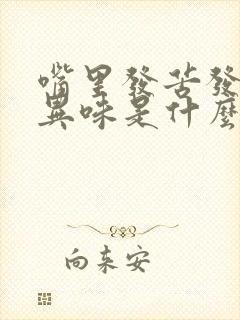 嘴里發苦發
異味是什麼
向末安